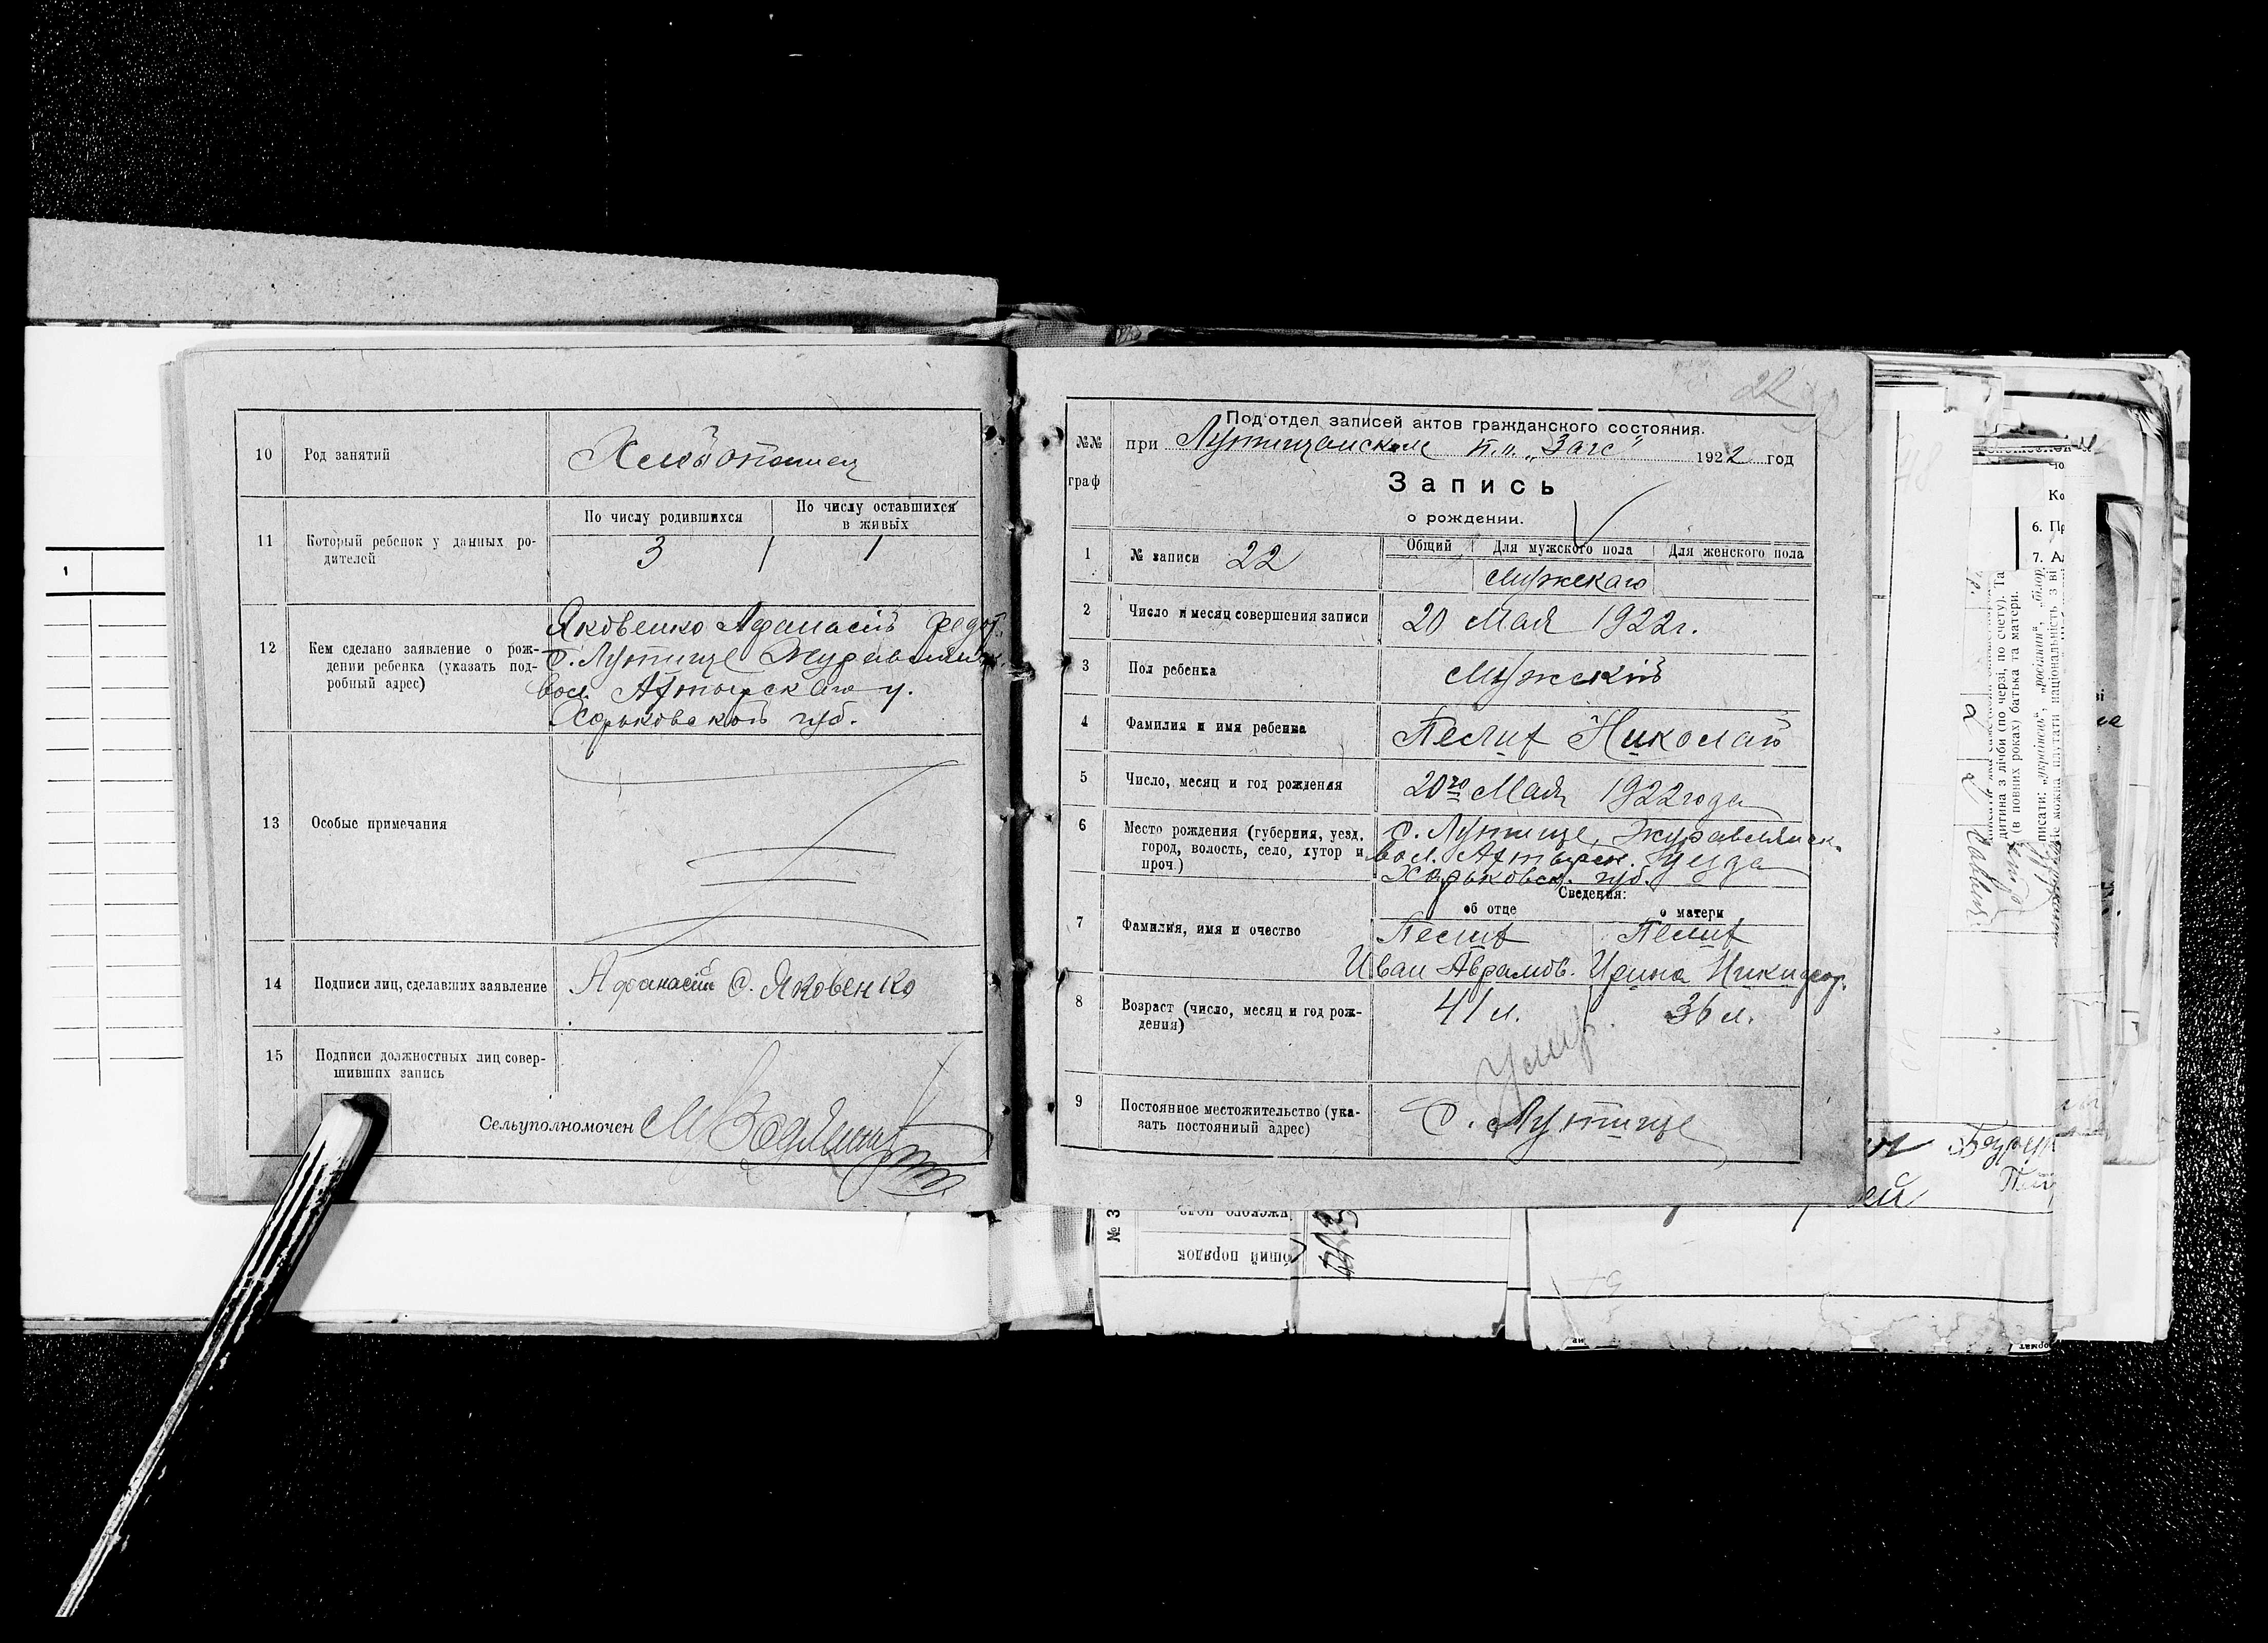 10 Род занятий Хлебопашец
11 Который ребенок у данных ро-
дителей
По числу родившихся
По числу оставшихся
в живых
3 1
12 Кем сделано заявление о рож-
дении ребенка (указать под-
робный адрес)
Яковенко Афанасій Федот.
с. Лутище Журавлянск.
вол. Ахтырскаго у.
Харьковской губ.
13 Особые примечания
14 Подписи лиц, сделавших заявление Афанасій Яковенко
15 Подписи должностных лиц совер-
шивших запись
Сельуполномочен
22
Под'отдел записей актов гражданского состояния.
№№
граф
при Лутищанском п.п. „Загс" 1922 год
Запись
о рождении.
1 № записи 22
Общий Для мужского пола Для женского пола
Мужскаго
2 Число и месяц совершения записи 20 Мая 1922 г.
3 Пол ребенка Мужскій
4 Фамилия и имя ребенка Пелих Николай
5 Число, месяц и год рождения 20го Мая 1922 года
6 Место рождения (губерния, уезд,
город, волость, село, хутор и
проч.)
с. Лутище, Журавлянск.
вол. Ахтырск. уезда
Харьковск. губ.
Сведения:
об отце о матери
7 Фамилия, имя и очество
Пелих Пелих
Иван Аврамов. Ирина Никифор.
8 Возраст (число, месяц и год рож-
дения)
41 л. 36 л.
Умер.
9 Постоянное местожительство (ука-
зать постоянный адрес)
с. Лутище